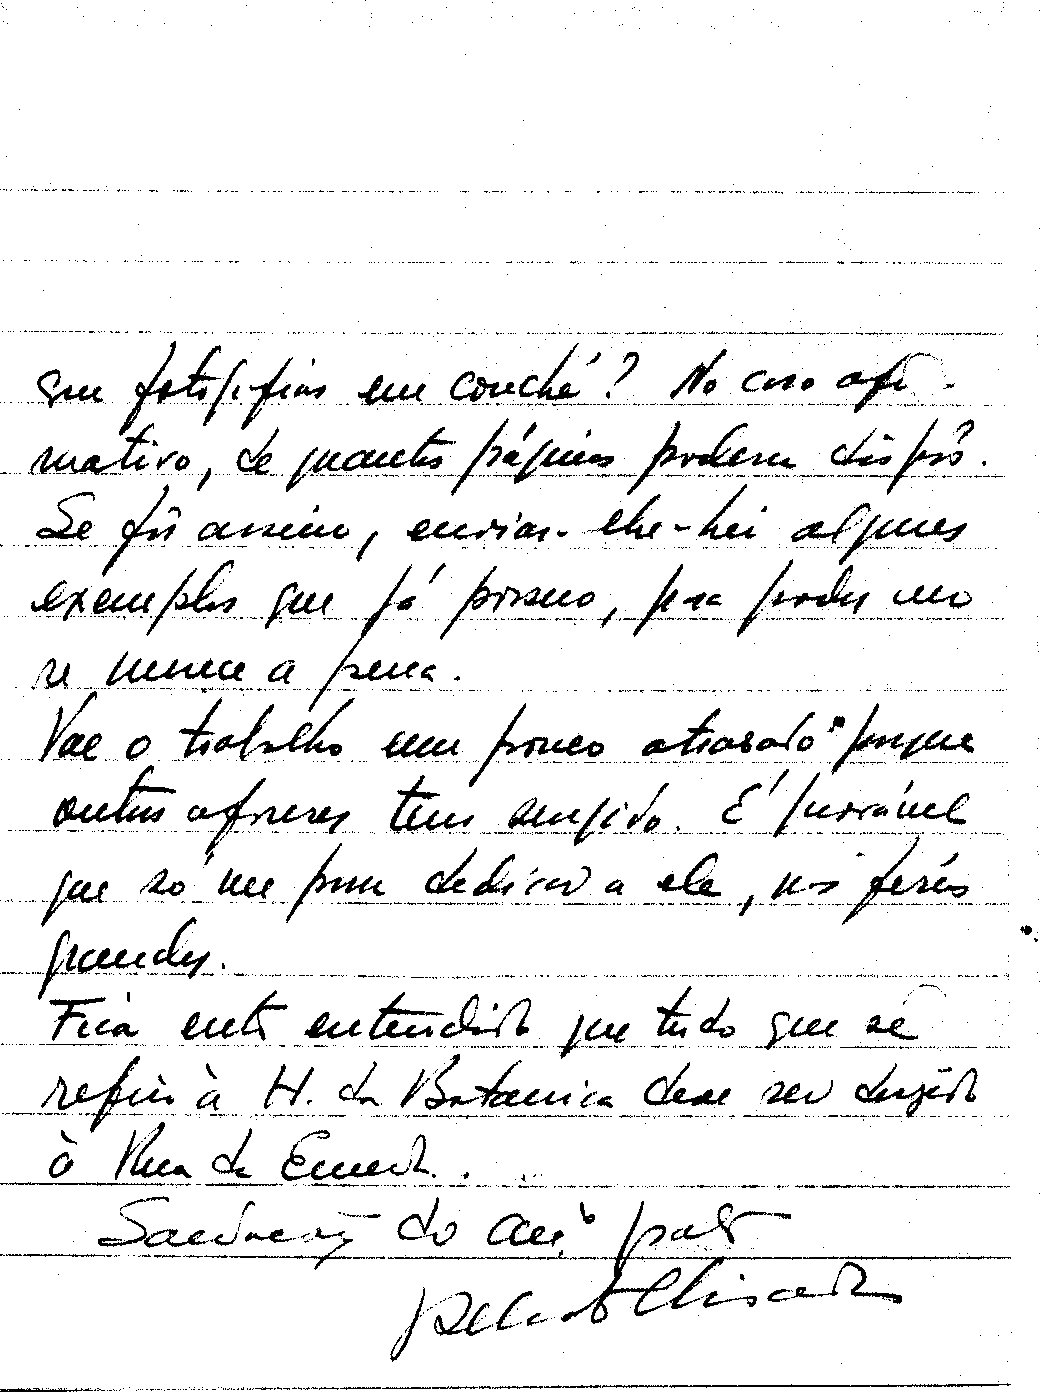 que fotografias em couché? No caso afir-
mativo, de quantas páginas poderia dispôr.
Se fôr assim, enviar-lhe-hei alguns
exemplos que já possuo, para poder ver
se merece a pena.
Vae o trabalho um pouco atrasado porque
outros afazeres tem surgido. É provável
que só me possa dedicar a ele, nas férias
grandes.
Fica então entendido que tudo que se
refira à H. da Botanica deve ser dirigido
à Rua da Emenda.
Saudações do am.º grato